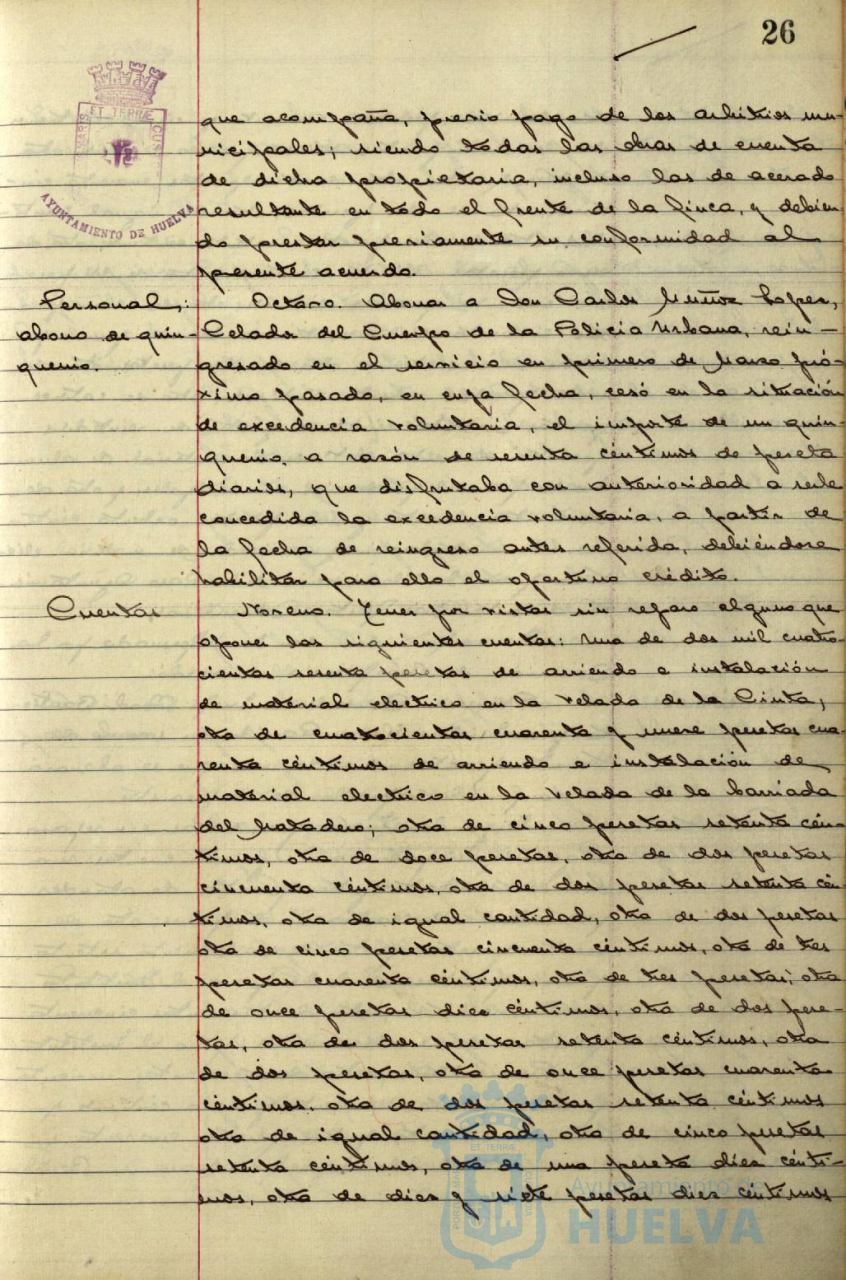 26
PORTUS MARIS ET TERRAE CUSTODIA
AYUNTAMIENTO DE HUELVA
que acompaña, previo pago de los arbitrios mu-
nicipales; siendo todas las obras de cuenta
de dicha propietaria, incluso las de acerado
resultante en todo el frente de la finca, y debien-
do prestar previamente su conformidad al
presente acuerdo.
Personal;
abono de quin-
quenio.
Octavo. Abonar a Don Carlos Muñoz Lopez,
Celador del Cuerpo de la Policia Urbana, rein-
gresado en el servicio en primero de Marzo pró-
ximo pasado, en cuya fecha, cesó en la situación
de excedencia voluntaria, el importe de un quin-
quenio, a razón de sesenta céntimos de peseta
diarios, que disfrutaba con anterioridad a serle
concedida la excedencia voluntaria, a partir de
la fecha de reingreso antes referida, debiéndose
habilitar para ello el oportuno crédito.
Cuentas
Noveno. Tener por vistas sin reparo alguno que
oponer las siguientes cuentas: Una de dos mil cuatro-
cientas sesenta pesetas de arriendo e instalación
de material electrico en la Velada de la Cinta;
otra de cuatrocientas cuarenta y nueve pesetas cua-
renta céntimos de arriendo e instalación de
material electrico en la Velada de la barriada
del Matadero; otra de cinco pesetas setenta cén-
timos, otra de doce pesetas, otra de dos pesetas
cincuenta céntimos, otra de dos pesetas setenta cén-
timos, otra de igual cantidad, otra de dos pesetas
otra de cinco pesetas cincuenta céntimos, otra de tres
pesetas cuarenta céntimos, otra de tres pesetas; otra
de once pesetas diez céntimos, otra de dos pese-
tas, otra de dos pesetas setenta céntimos, otra
de dos pesetas, otra de once pesetas cuarenta
céntimos, otra de dos pesetas setenta céntimos
otra de igual cantidad, otra de cinco pesetas
setenta céntimos, otra de una peseta diez cénti-
mos, otra de diez y siete pesetas diez céntimos
Ayuntamiento de
HUELVA